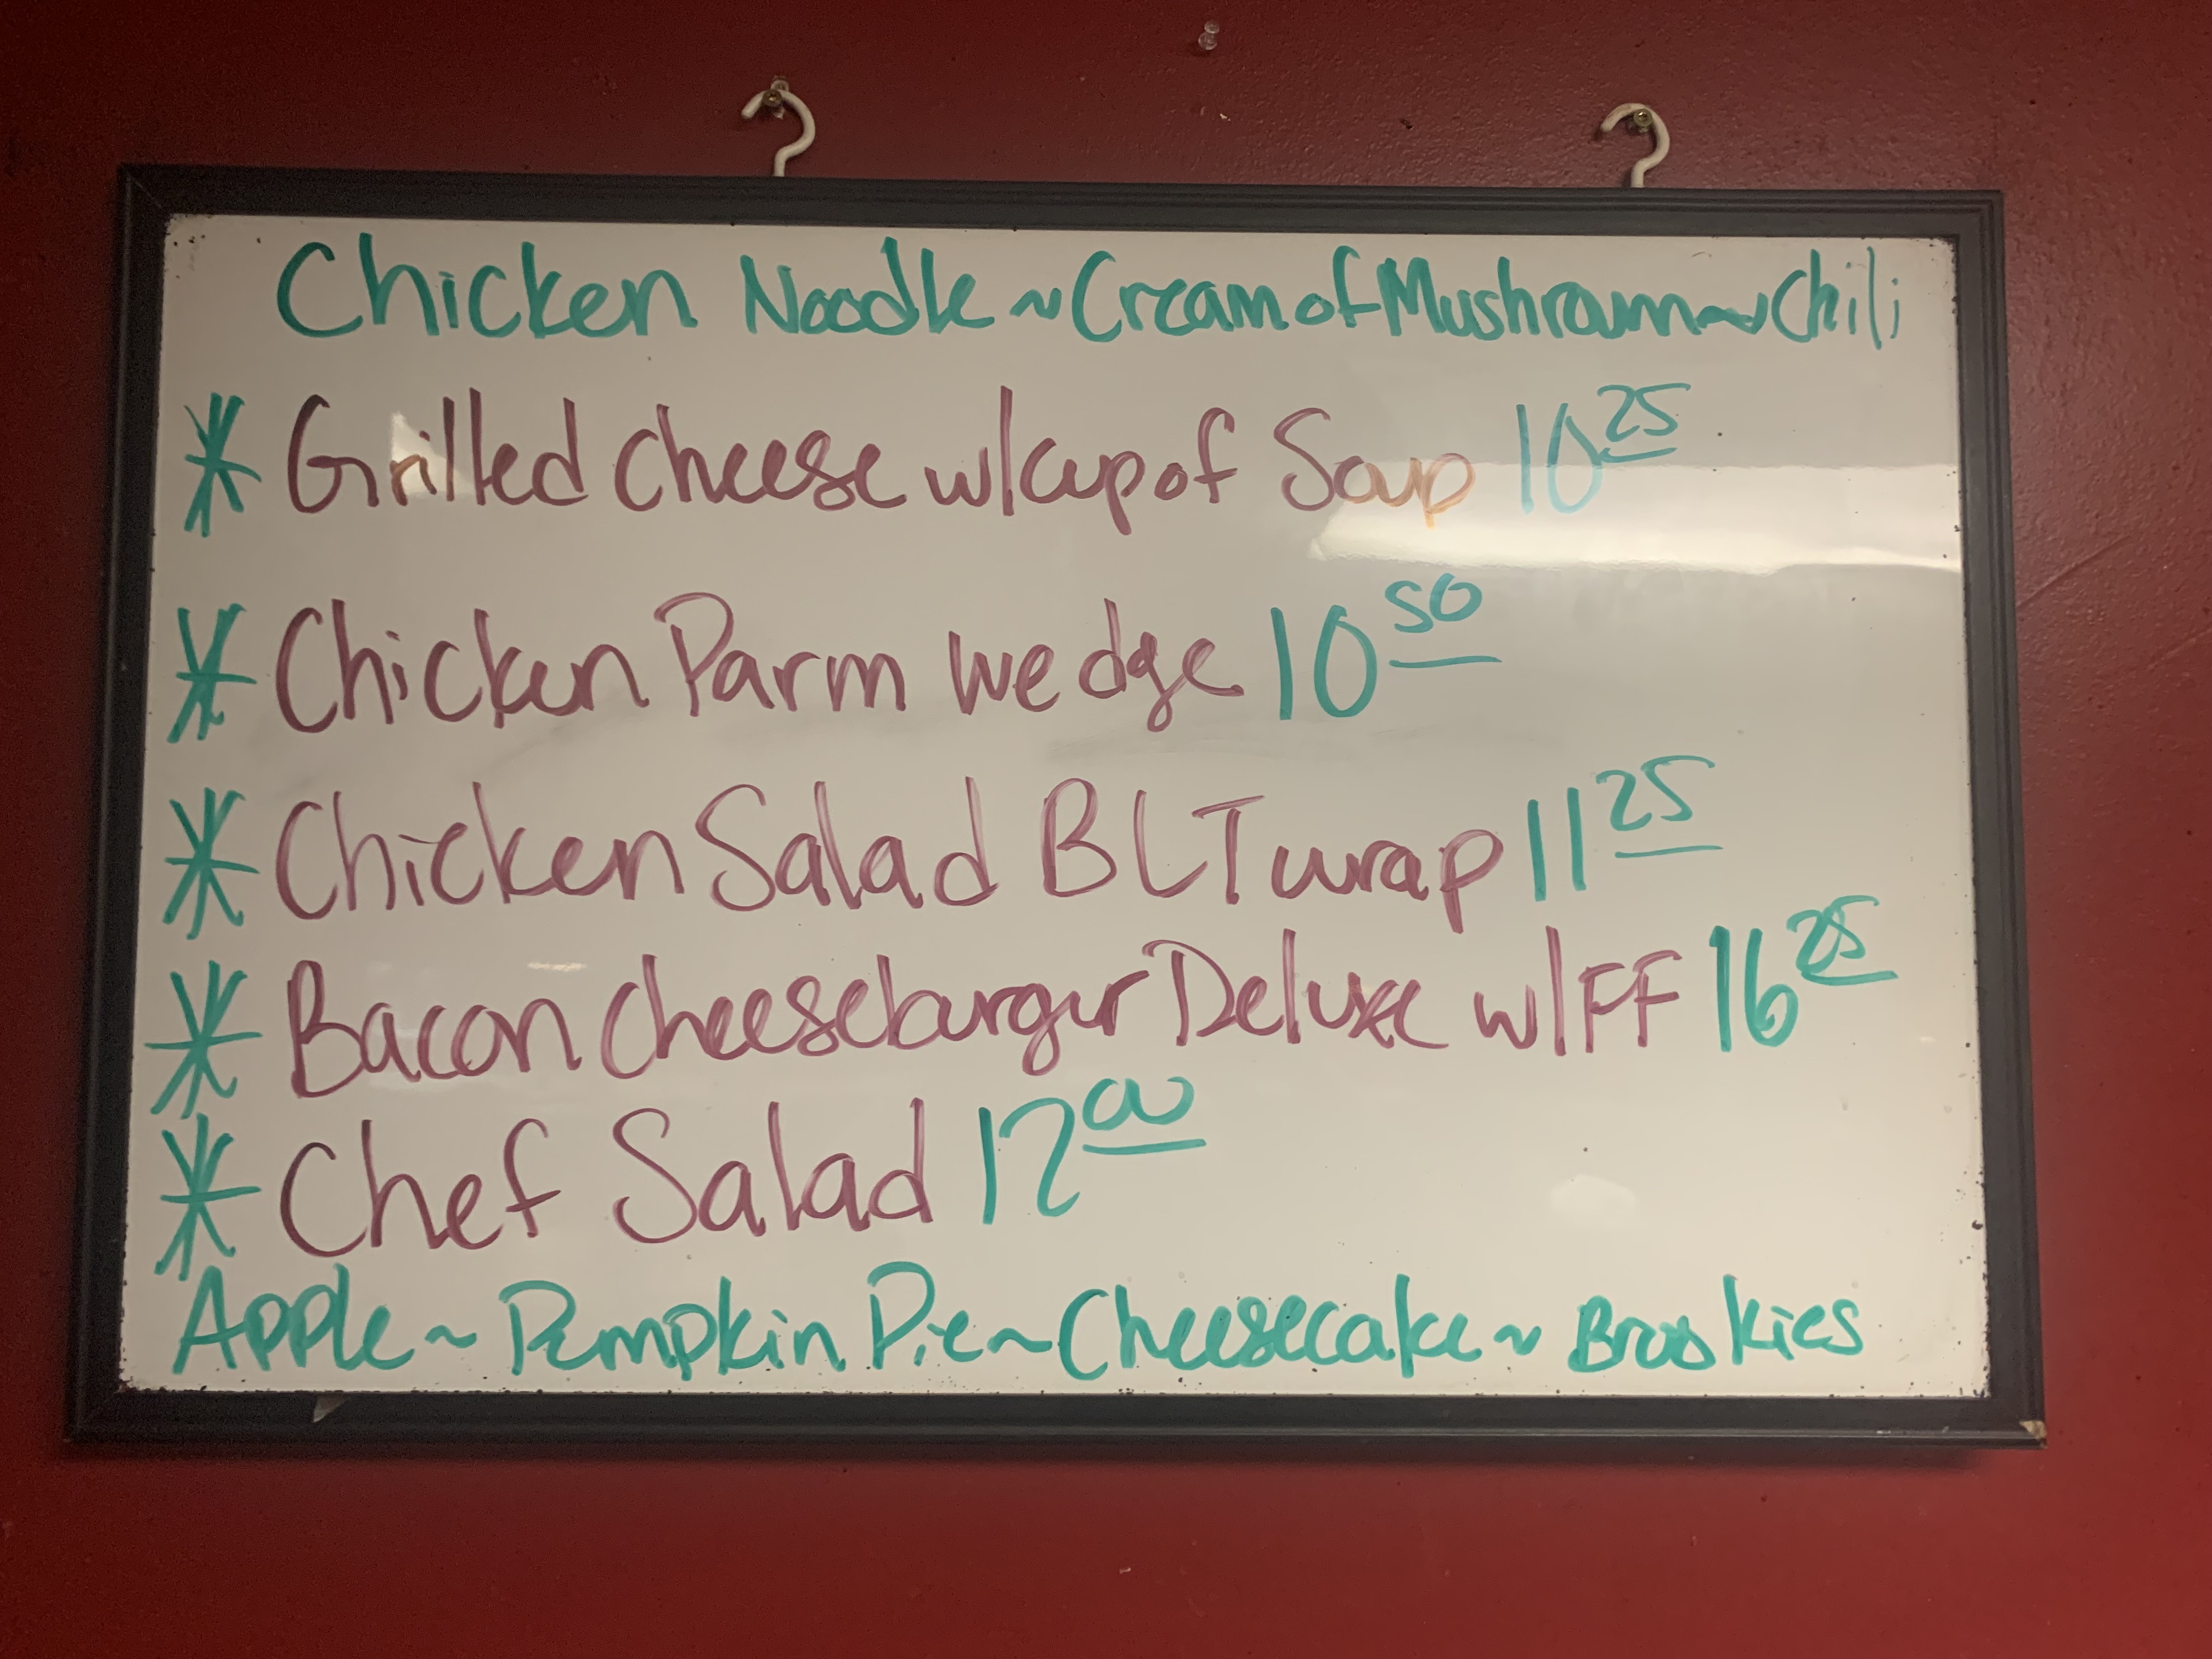 Chicken Noodle ~ Cream of Mushroom ~ Chili
* Grilled Cheese w/cup of Soup 10 25
* Chicken Parm Wedge 10 50
* Chicken Salad BLT wrap 11 25
* Bacon Cheeseburger Deluxe w/FF 16 25
* Chef Salad 12 00
Apple ~ Pumpkin Pie ~ Cheesecake ~ Brookies